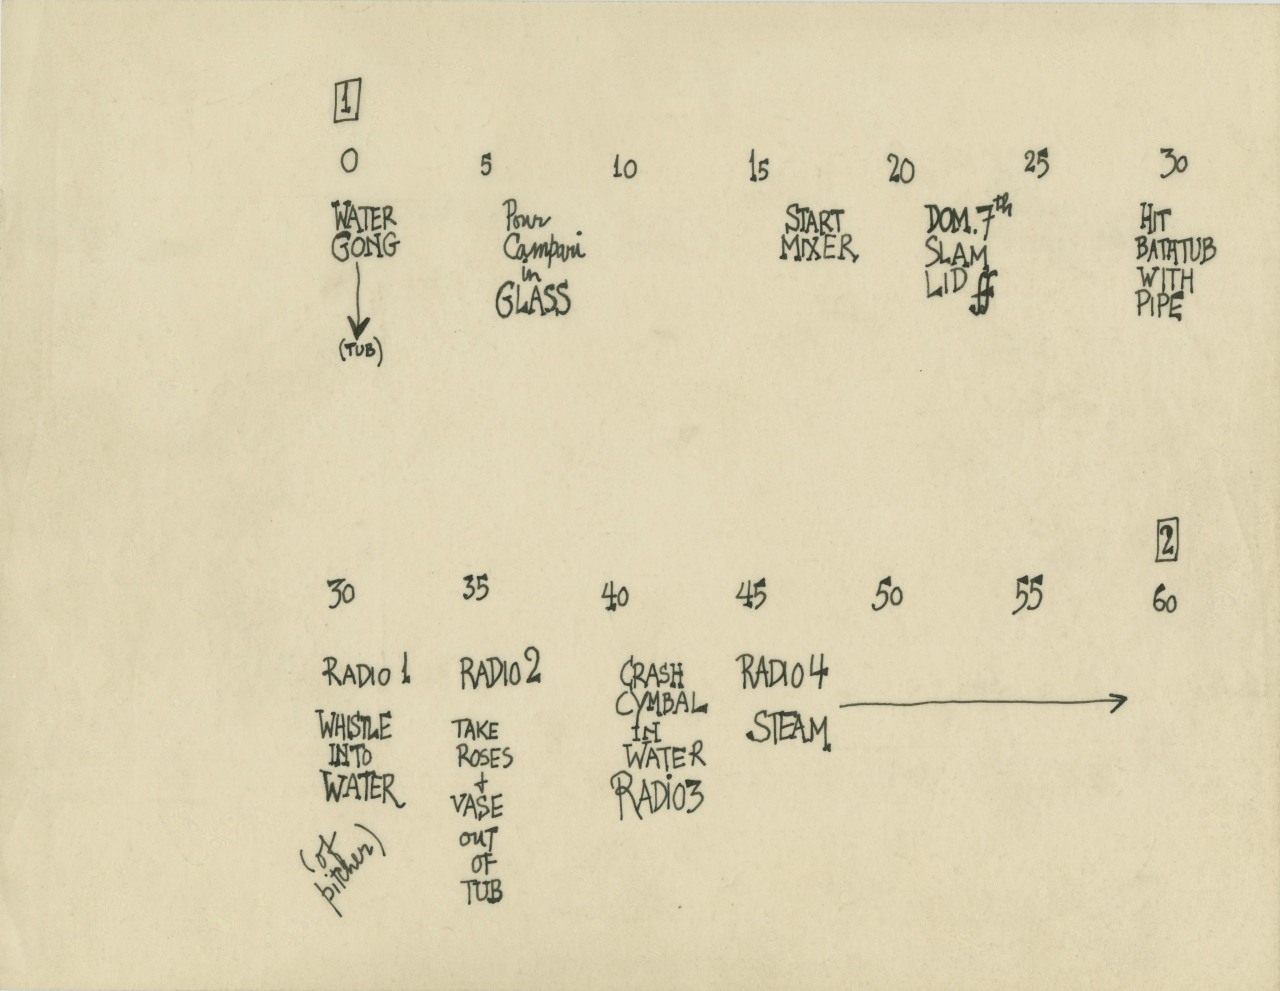 1
0 5 10 15 20 25 30
WATER
GONG
(TUB)
Pour
Campari
in
GLASS
START
MIXER
DOM. 7th
SLAM
LID ff
HIT
BATHTUB
WITH
PIPE
2
30 35 40 45 50 55 60
RADIO 1
WHISTLE
INTO
WATER
(of
pitcher)
RADIO 2
TAKE
ROSES
+
VASE
OUT
OF
TUB
CRASH
CYMBAL
IN
WATER
RADIO 3
RADIO 4
STEAM